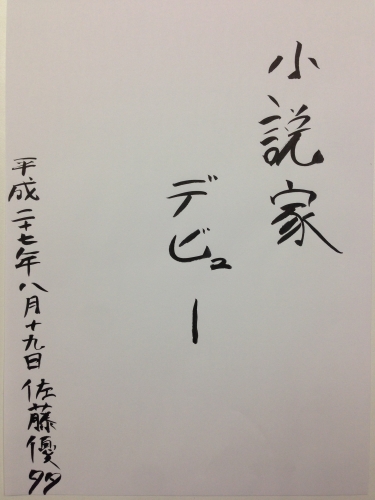 小説家
デビュー
平成二十七年八月十九日佐藤優タタ